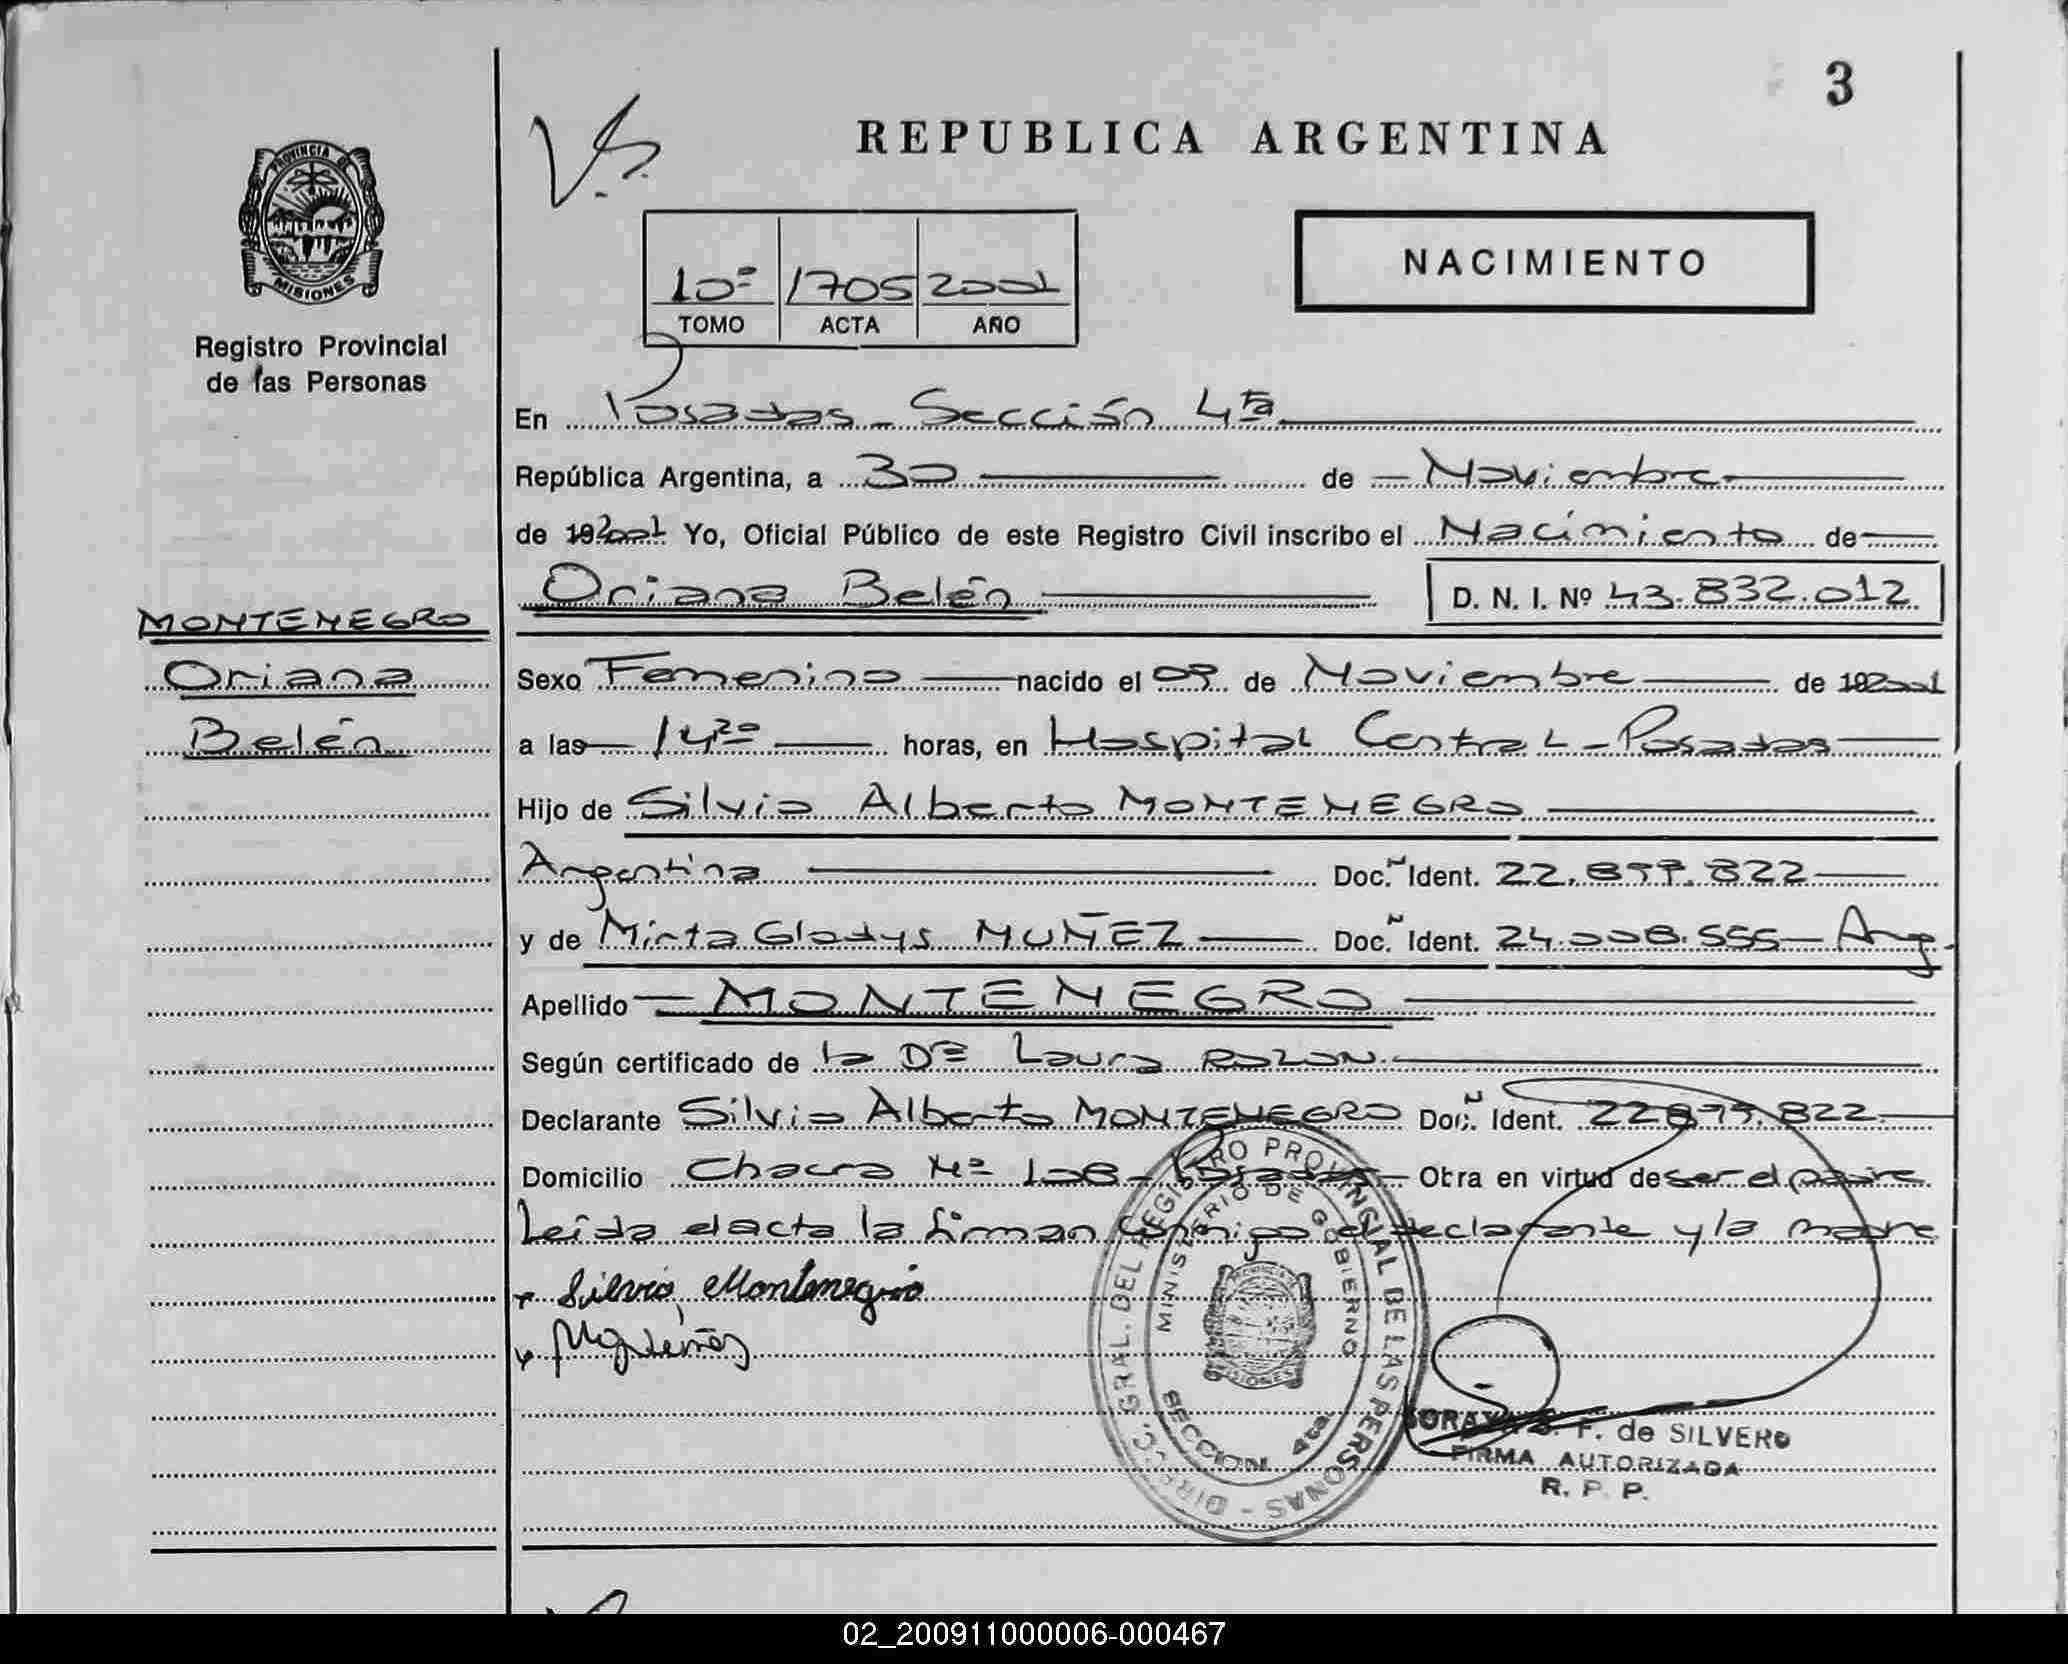 3
REPUBLICA ARGENTINA
V.S.
PROVINCIA DE
MISIONES
NACIMIENTO
10º 1705 2001
TOMO ACTA AÑO
Registro Provincial
de las Personas
En Posadas - Sección 4ta
República Argentina, a 30 de Noviembre
de 192001 Yo, Oficial Público de este Registro Civil inscribo el Nacimiento de
Oriana Belén D. N. I. Nº 43.832.012
MONTENEGRO
Oriana
Belén
Sexo Femenino nacido el 09 de Noviembre de 192001
a las 14,20 horas, en Hospital Central - Posadas
Hijo de Silvio Alberto MONTENEGRO
Argentina Doc. Ident. 22.899.822
y de Mirta Gladys MUÑEZ Doc. Ident. 24.008.555 - Arg.
Apellido MONTENEGRO
Según certificado de la Dra Laura
Declarante Silvio Alberto MONTENEGRO Doc. Ident. 22899.822
Domicilio Chacra Nº 108 - Posadas - Obra en virtud de ser el padre
Leída el acta la firman conmigo el declarante y la madre
Silvio Montenegro
DIRECC. GRAL. DEL REGISTRO PROVINCIAL DE LAS PERSONAS -
MINISTERIO DE GOBIERNO
SECCION 4ta
SORAYA S. F. de SILVERO
FIRMA AUTORIZADA
R. P. P.
02_200911000006-000467